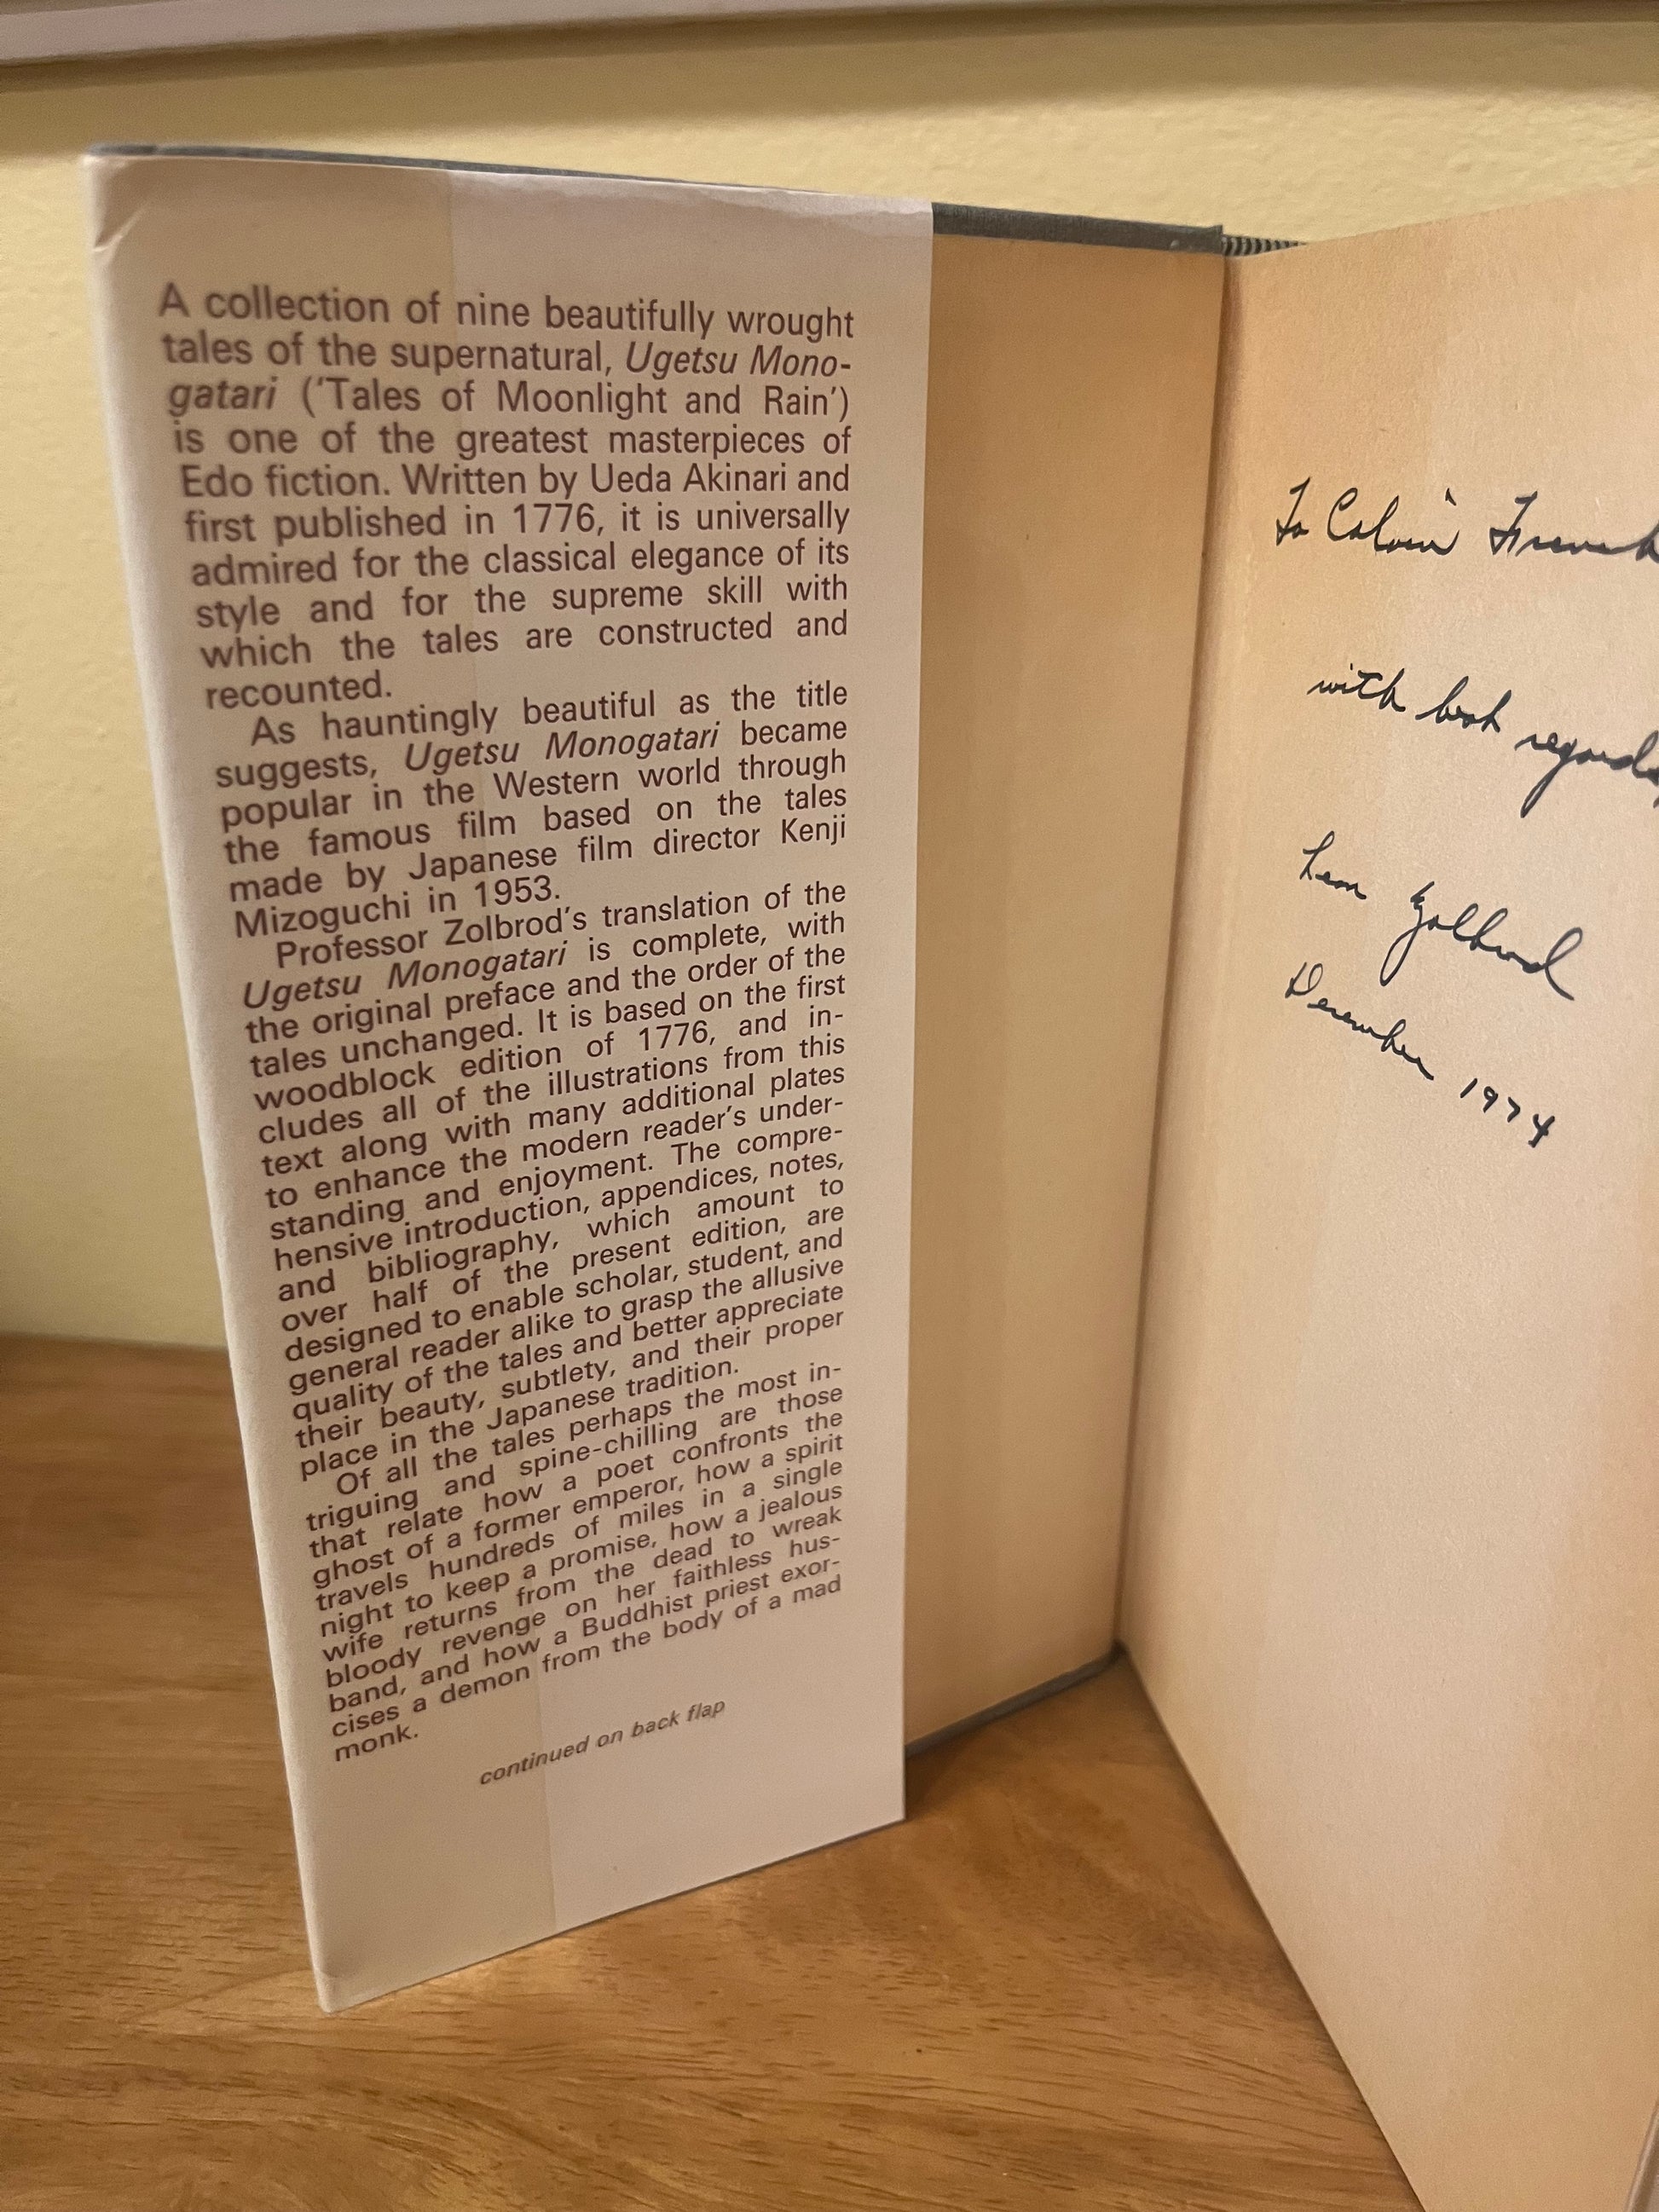 A collection of nine beautifully wrought
tales of the supernatural, Ugetsu Mono-
gatari (‘Tales of Moonlight and Rain’)
is one of the greatest masterpieces of
Edo fiction. Written by Ueda Akinari and
first published in 1776, it is universally
admired for the classical elegance of its
style and for the supreme skill with
which the tales are constructed and
recounted.
As hauntingly beautiful as the title
suggests, Ugetsu Monogatari became
popular in the Western world through
the famous film based on the tales
made by Japanese film director Kenji
Mizoguchi in 1953.
Professor Zolbrod’s translation of the
Ugetsu Monogatari is complete, with
the original preface and the order of the
tales unchanged. It is based on the first
woodblock edition of 1776, and in-
cludes all of the illustrations from this
text along with many additional plates
to enhance the modern reader’s under-
standing and enjoyment. The compre-
hensive introduction, appendices, notes,
and bibliography, which amount to
over half of the present edition, are
designed to enable scholar, student, and
general reader alike to grasp the allusive
quality of the tales and better appreciate
their beauty, subtlety, and their proper
place in the Japanese tradition.
Of all the tales perhaps the most in-
triguing and spine-chilling are those
that relate how a poet confronts the
ghost of a former emperor, how a spirit
travels hundreds of miles in a single
night to keep a promise, how a jealous
wife returns from the dead to wreak
bloody revenge on her faithless hus-
band, and how a Buddhist priest exor-
cises a demon from the body of a mad
monk.
continued on back flap
To Calvin French
with best regards,
Leon Zolbrod
December 1974